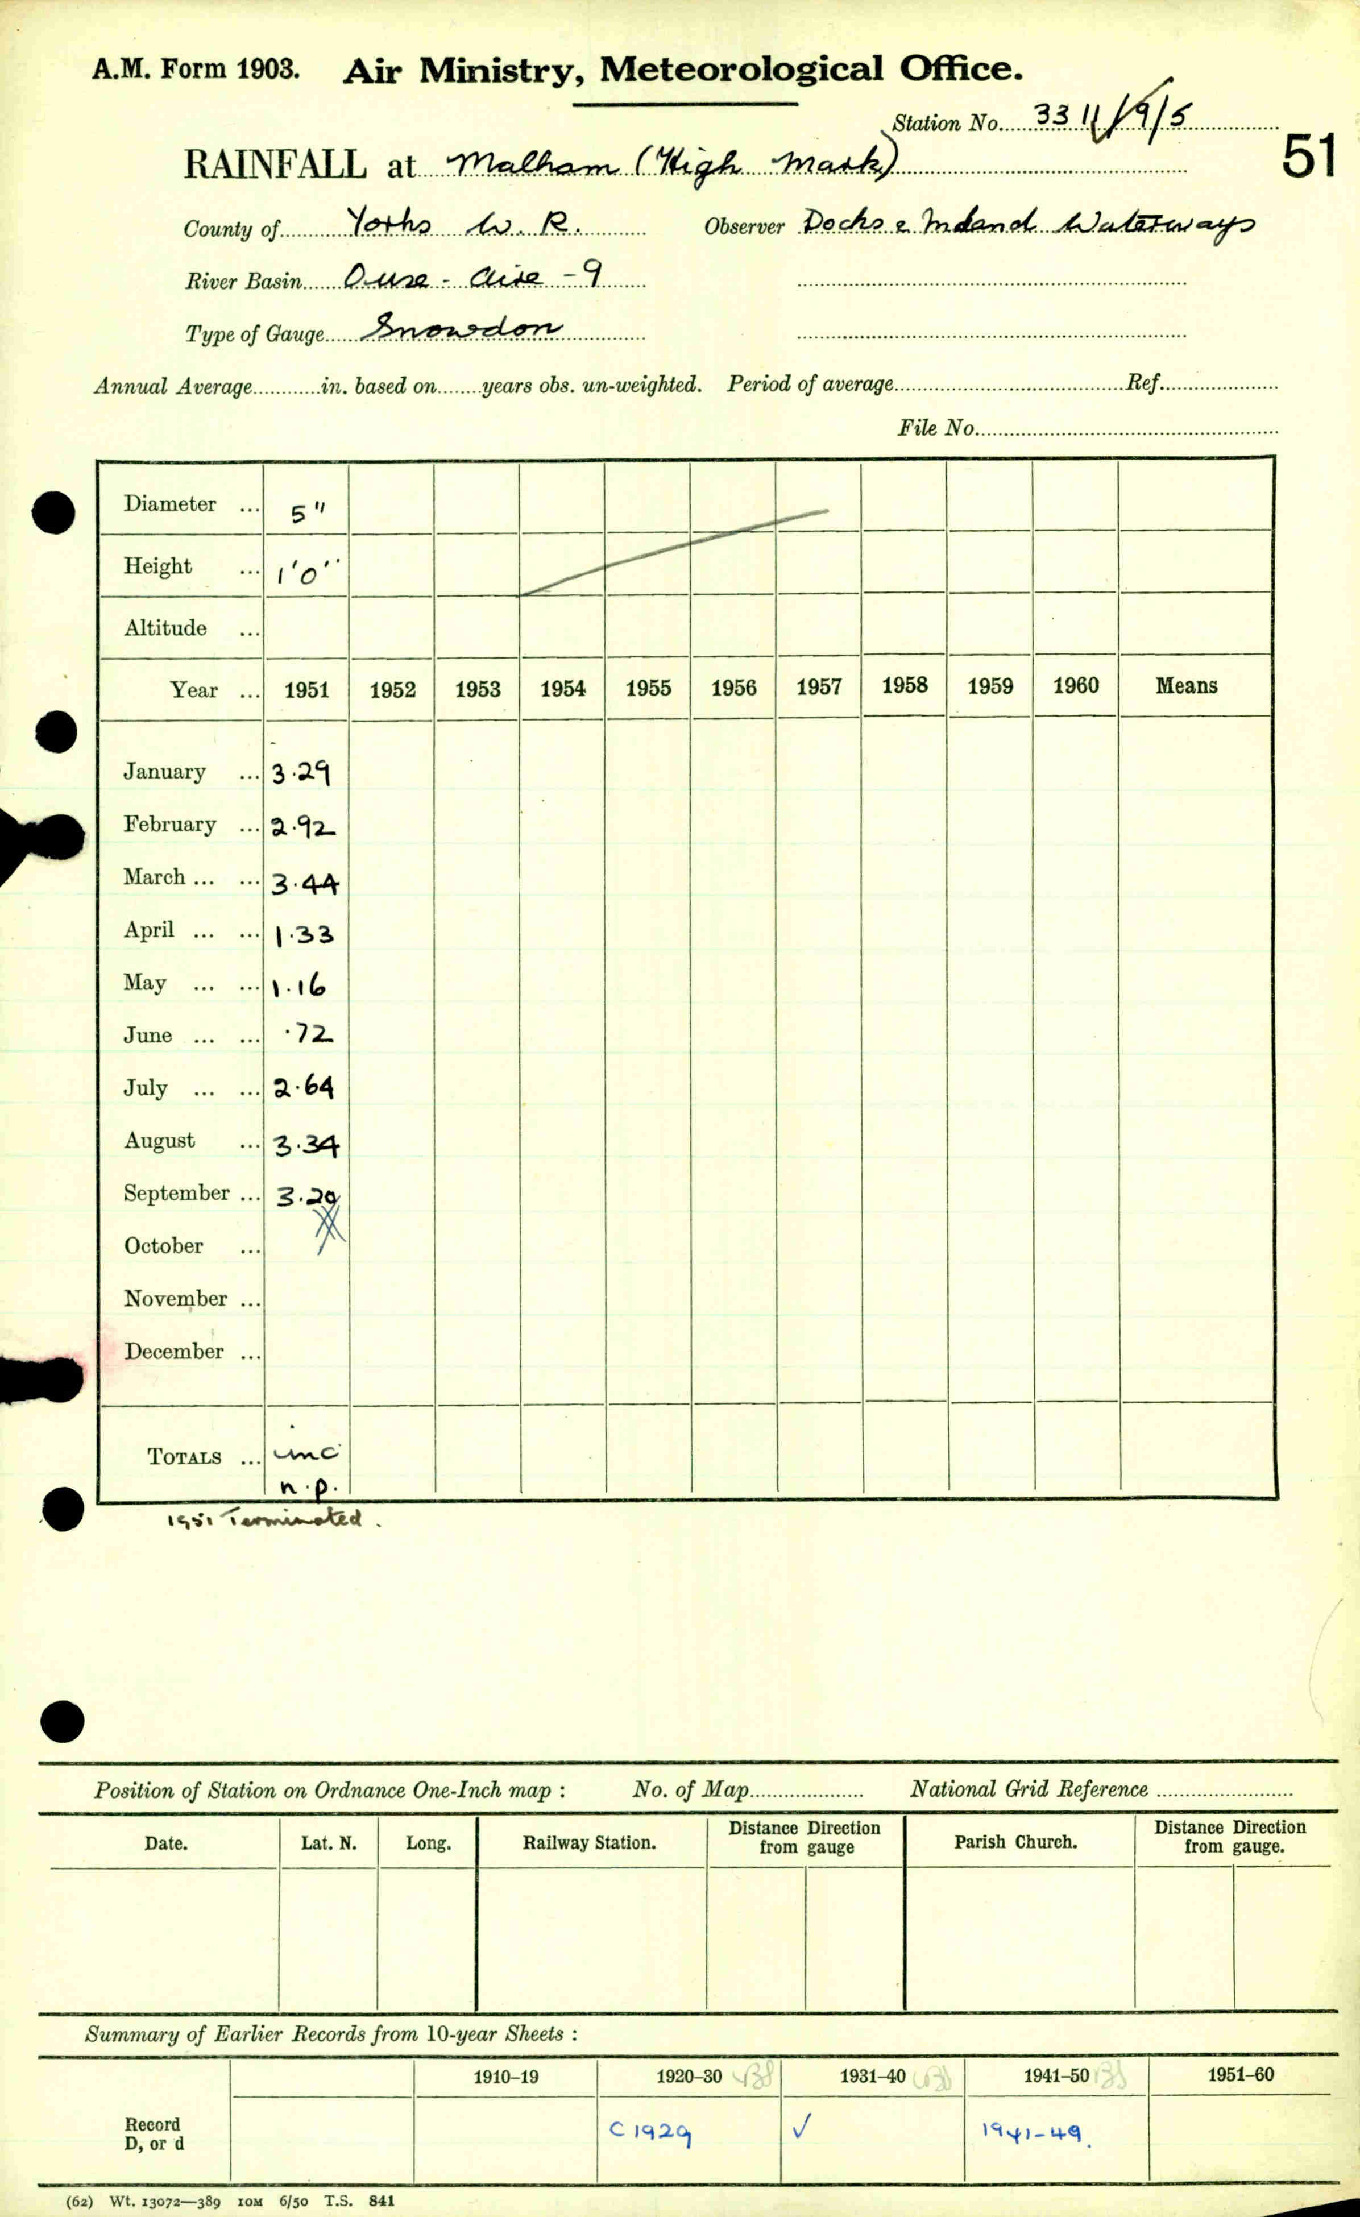 A.M. Form 1903. Air Ministry, Meteorological Office.
Station No. 3311/9/5
51
RAINFALL at Malham (High Mark)
County of Yorks W. R. Observer Docks & Inland Waterways
River Basin Ouse - Aire - 9
Type of Gauge Snowdon
Annual Average............in. based on........years obs. un-weighted. Period of average.............Ref.............
File No.............
Diameter ... 5"
Height ... 1'0"
Altitude ...
Year ... 1951 1952 1953 1954 1955 1956 1957 1958 1959 1960 Means
January ... 3.29
February ... 2.92
March ... ... 3.44
April ... ... 1.33
May ... ... 1.16
June ... ... .72
July ... ... 2.64
August ... 3.34
September ... 3.29
October ...
November ...
December ...
TOTALS ... inc
n.p.
1951 Terminated.
Position of Station on Ordnance One-Inch map : No. of Map.................... National Grid Reference ........................
Date. Lat. N. Long. Railway Station. Distance Direction from gauge Parish Church. Distance Direction from gauge.
Summary of Earlier Records from 10-year Sheets :
1910–19 1920–30 1931–40 1941–50 1951–60
Record
D, or d C 1929 ✓ 1941-49.
(62) Wt. 13072—389 10M 6/50 T.S. 841